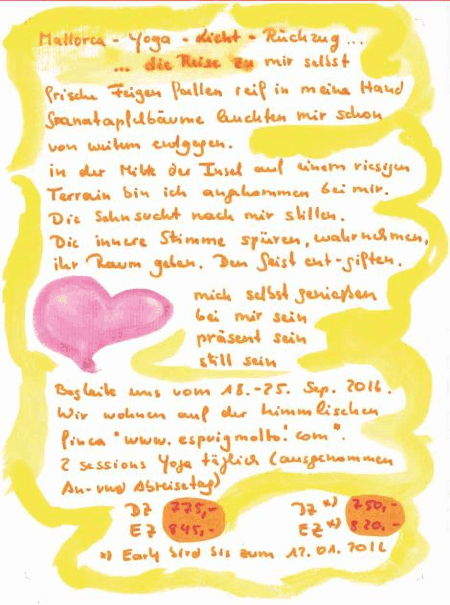 Mallorca - Yoga - Licht - Rückzug ...
... die Reise zu mir selbst
frische Feigen fallen reif in meine Hand
Granatapfelbäume leuchten mir schon
von weitem entgegen.
in der Mitte der Insel auf einem riesigen
Terrain bin ich angekommen bei mir.
Die Sehnsucht nach mir stillen.
Die innere Stimme spüren, wahrnehmen,
ihr Raum geben. Den Geist ent-giften.
mich selbst genießen
bei mir sein
präsent sein
still sein
Begleite uns vom 18.-25. Sep. 2016.
Wir wohnen auf der himmlischen
finca "www.espuigmolto.com".
2 sessions Yoga täglich (ausgenommen
An- und Abreisetag)
DZ 775,- DZ *) 750,-
EZ 845,- EZ *) 820,-
*) Early bird bis zum 12.01.2016